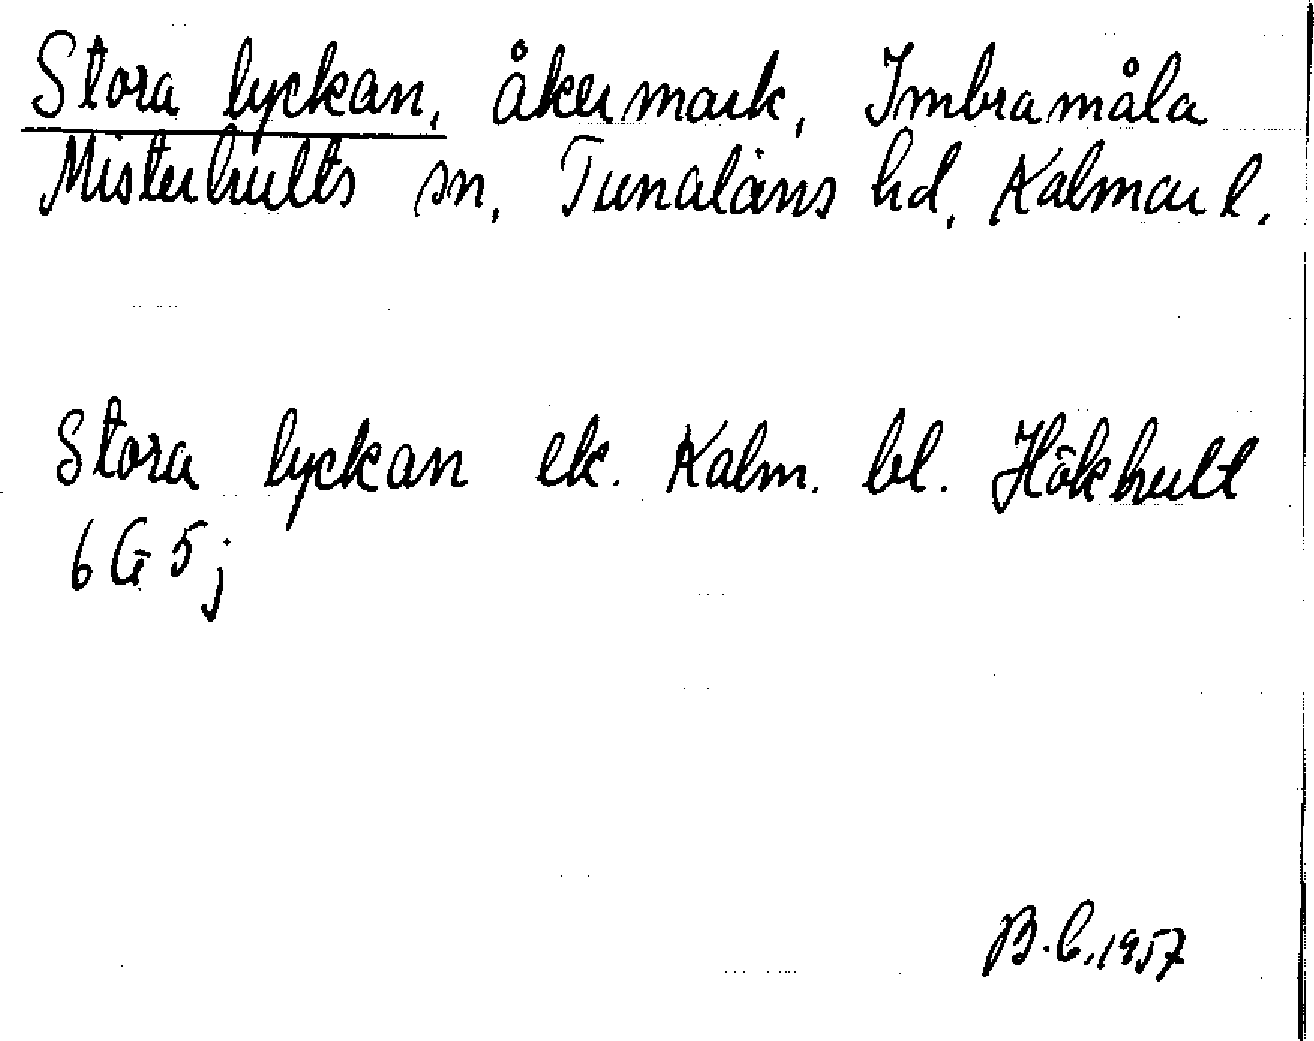 Stora lyckan, åkermark, Imbramåla
Misterhults sn, Tunaläns hd, Kalmar l.
Stora lyckan ek. Kalm. bl. Hökhult
6 G 5 j
B.C. 1957